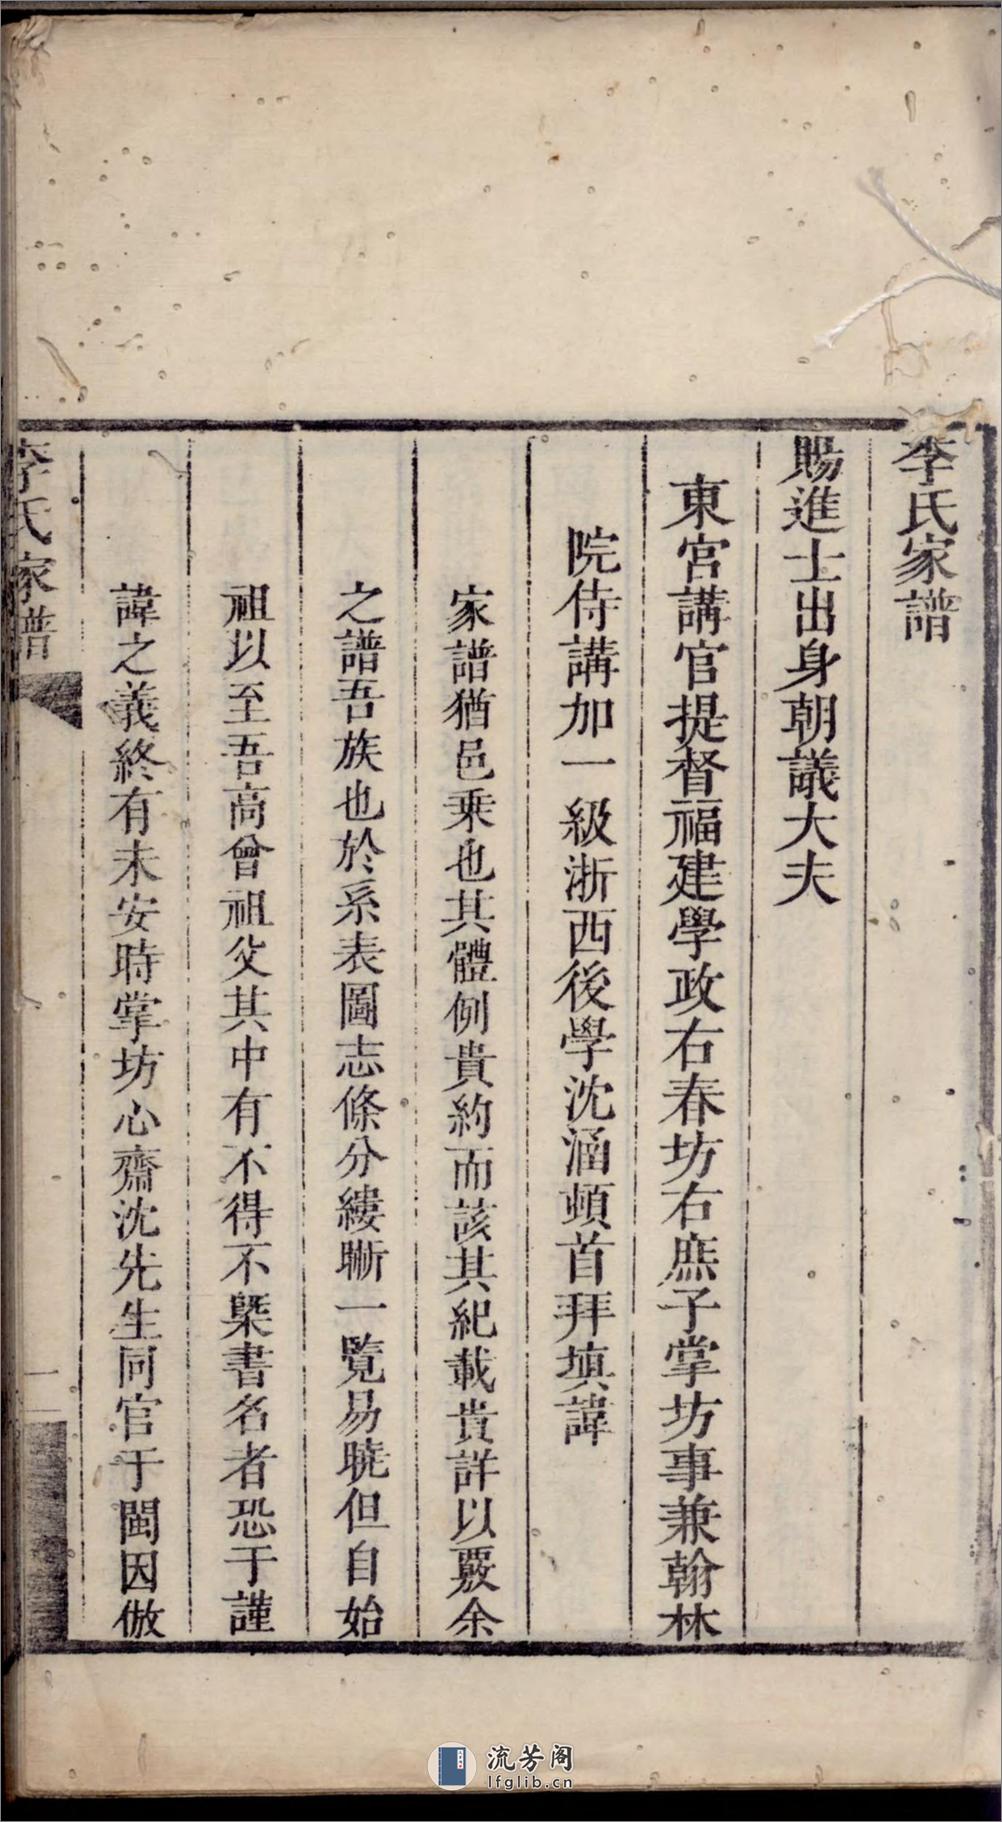 李氏家譜
賜進士出身朝議大夫
東宮講官提督福建學政右春坊右庶子掌坊事兼翰林
院侍講加一級浙西後學沈涵頓首拜填諱
家譜猶邑乗也其體例貴約而該其紀載貴詳以覈余
之譜吾族也於系表圖志條分縷晰一覽易曉但自始
祖以至吾高曾祖父其中有不得不槩書名者恐于謹
諱之義終有未安時掌坊心齋沈先生同官于閩因倣
李氏家譜
一
流芳阁
lfglib.cn